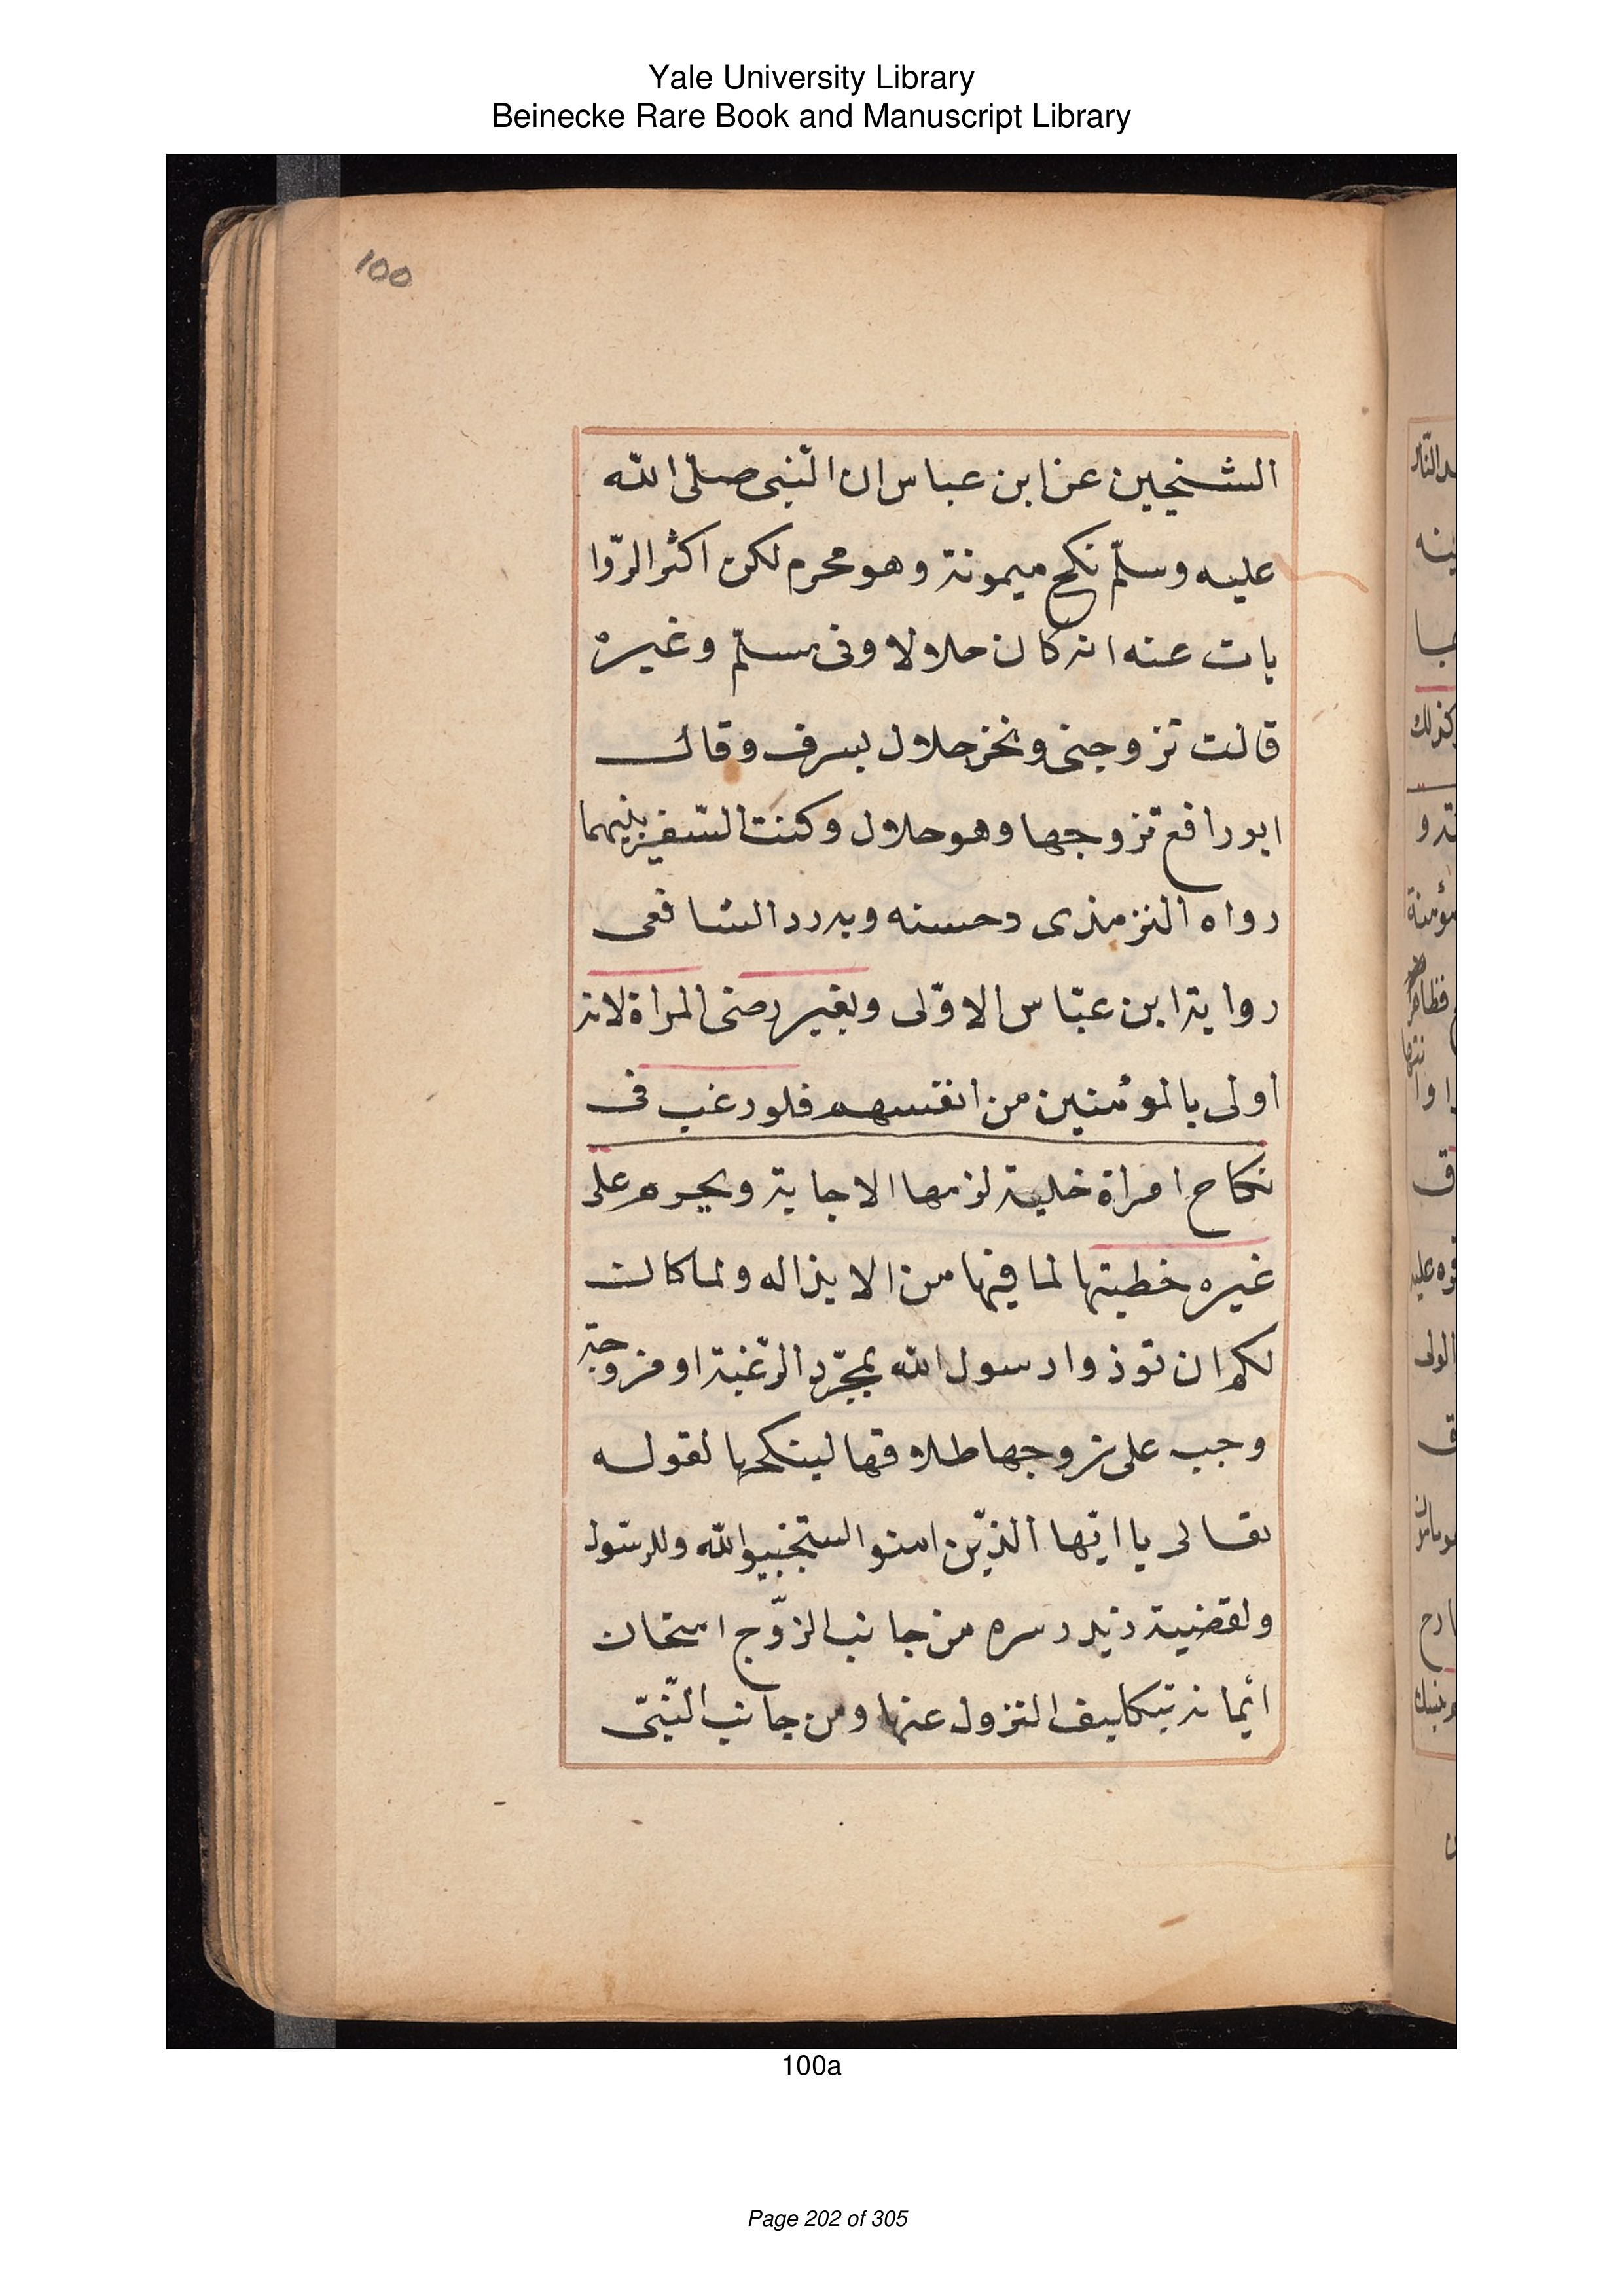 Yale University Library
Beinecke Rare Book and Manuscript Library
100
الشنجين عن ابن عباس ان النّبى صلّى الله
عليه وسلّم نكح ميمونة وهو محرم لكن اكثر الرّوا
يات عنه انه كان حلالا وفى مسلّم وغيره
قالت تزوجنى ونحن حلال بسرف وقال
ابو رافع تزوجها وهو حلال وكنت السّفير بينهما
رواه الترمذى وحسنه وبه رد الشافعى
رواية ابن عبّاس الاوّلى وبغير رضى المراة لانه
اولى بالمؤمنين من انفسهم فلو رغب فى
نكاح امراة خلية لزمها الاجابة ويحرم على
غيره خطبتها لما فيها من الايذاله وما كان
لكم ان توذوا رسول الله بمجّرد الرّغبة او مزوجة
وجب على زوجها طلاقها لينكحها لقوله
تعالى يا ايّها الذيّن امنوا استجيبوا لله وللرسّول
ولقضية زيد وسره من جانب الزوّج امتحان
ايمانه بتكليف النزول عنها ومن جانب النّبىّ
100a
Page 202 of 305